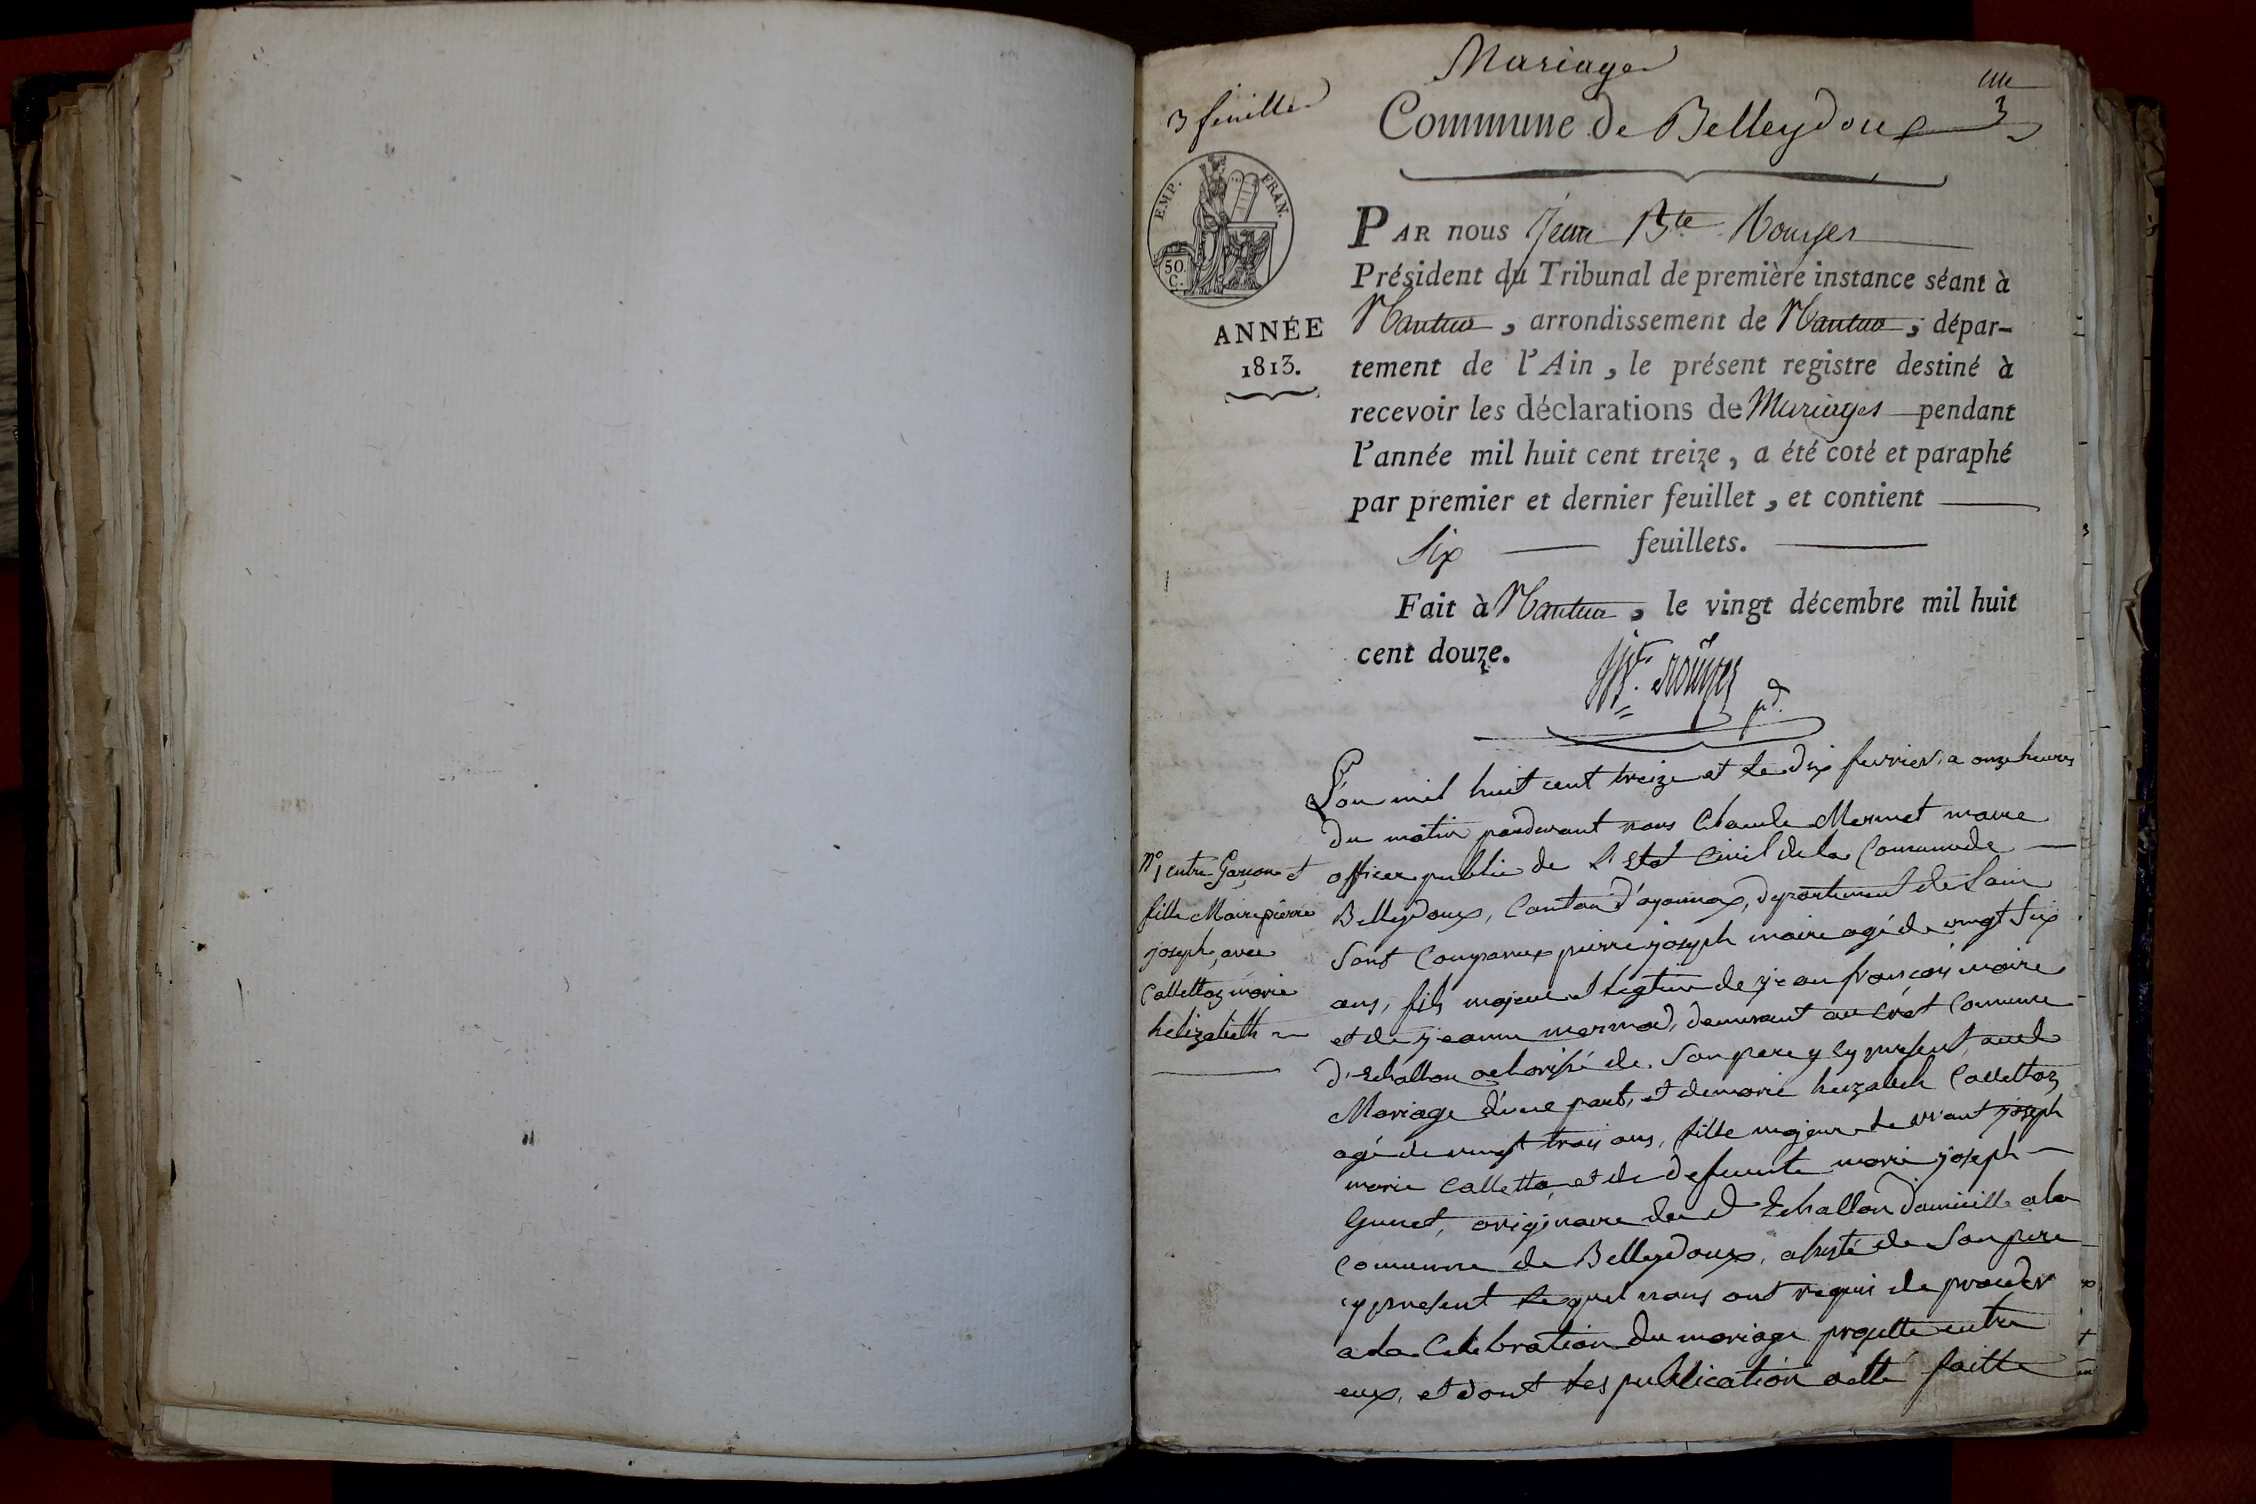 Mariage
3 feuillet
3
Commune de Belleydoux
EMP. FRAN.
50
C.
ANNÉE
1813.
PAR nous Jean Bte Rouyer
Président du Tribunal de première instance séant à
Nantua, arrondissement de Nantua, dépar-
tement de l'Ain, le présent registre destiné à
recevoir les déclarations de Mariages pendant
l'année mil huit cent treize, a été coté et paraphé
par premier et dernier feuillet, et contient
Six feuillets.
Fait à Nantua, le vingt décembre mil huit
cent douze.
Rouyer pd.
N° 1 entre Garçon et
fille Maire pierre
joseph, avec
Callettaz marie
helizabeth
L'an mil huit cent treize et le dix fevrier, a onze heures
du matin pardevant nous Claude Mermet maire
officer public de l'Etat Civil de la Commune de
Belleydoux, Canton d'oyonnax, departement de Lain
Sont Comparus pierre joseph maire agé de vingt Six
ans, fils majeur et legitime de jean françois maire
et de jeanne mermod, demeurant au crêt Commune
d'Echallon autorisé de Son pere y cy present, audt
Mariage d'une part, et de marie heizabeh Callettaz
agé de vingt trois ans, fille majeure de vivant joseph
marie Calletta, et de defuncte marie joseph
Gunet, originaire de d Echallon domicillé a la
Commune de Belleydoux, assisté de Son pere
cy present Lequel nous ont requis de proceder
a la Celebration du mariage projetté entre
eux, et dont les publication a etté faitte